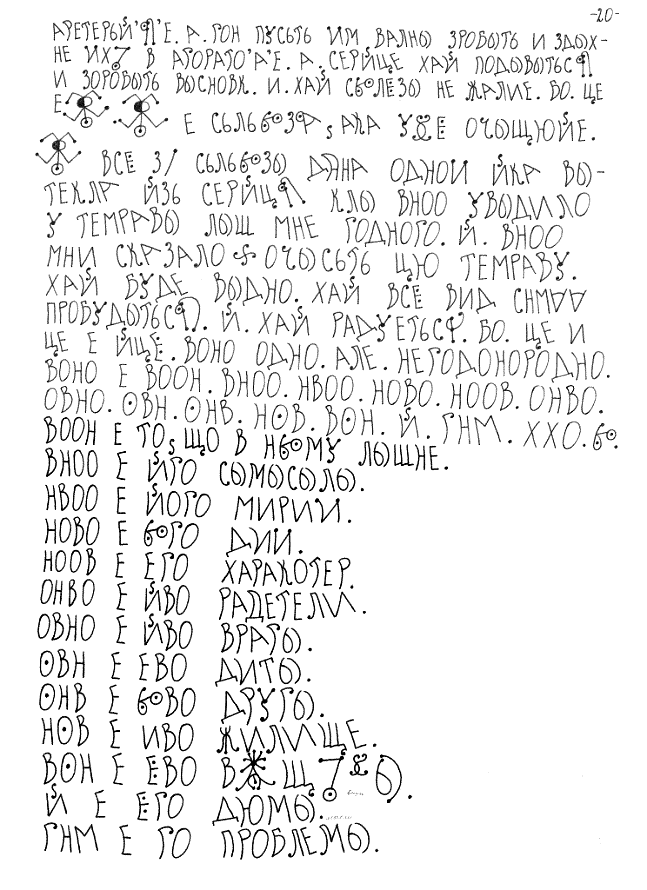 -20-
АРЕТЕРЫЙ'Я'Е. А. ГОН ПУСЬТЬ ИМ ВАЛНЫ ЗРОБЫТЬ И ЗДЫХ-
НЕ ИХ В АГОРАТО'А'Е. А. СЕРЙЦЕ ХАЙ ПОДЫВЫТЬСЯ
И ЗОРОВЫТЬ ВЫСНОВК. И. ХАЙ СЬОЛЕЗЫ НЕ ЖАЛИЕ. БО. ЦЕ
Е
Е СЬЛЬОЗА, ЯКА УЖЕ ОЧЫЩЮЙЕ.
ВСЕ З СЬЛЬОЗЫ ДАНА ОДНОИ ЙКА ВЫ-
ТЕКЛА ЙЗЬ СЕРЙЦЯ КЛЫ ВНОО УВЫДИЛО
У ТЕМРАВЫ ЛЫШ МНЕ ГОДНОГО. Й. ВНОО
МНИ СКАЗАЛО ОЧЫСЬТЬ ЦЮ ТЕМРАВУ.
ХАЙ БУДЕ ВЫДНО. ХАЙ ВСЕ ВИД СНА
ПРОБУДЫТЬСЯ. Й. ХАЙ РАДУЕТЬСЯ. БО. ЦЕ И
ЦЕ Е ЙЩЕ. ВОНО ОДНО. АЛЕ. НЕГОДОНОРОДНО.
ВОНО Е ВООН. ВНОО. НВОО. НОВО. НООВ. ОНВО.
ОВНО. ОВН. ОНВ. НОВ. ВОН. Й. ГНМ. ХХО. ЬО.
ВООН Е ТО, ЩО В НЬОМУ ЛЫШНЕ.
ВНОО Е ЙГО СЫМЫСЫЛЫ.
НВОО Е ЙОГО МИРИИ.
НОВО Е ЬОГО ДИИ.
НООВ Е ЕГО ХАРАКОТЕР.
ОНВО Е ЙВО РАДЕТЕЛИ.
ОВНО Е ЙВО ВРАГЫ.
ОВН Е ЕВО ДИТЫ.
ОНВ Е ЬОВО ДРУГЫ.
НОВ Е ИВО ЖИЛИЩЕ.
ВОН Е ЁВО
Й Е ЁГО ДЮМЫ.
ГНМ Е ГО ПРОБЛЕМЫ.